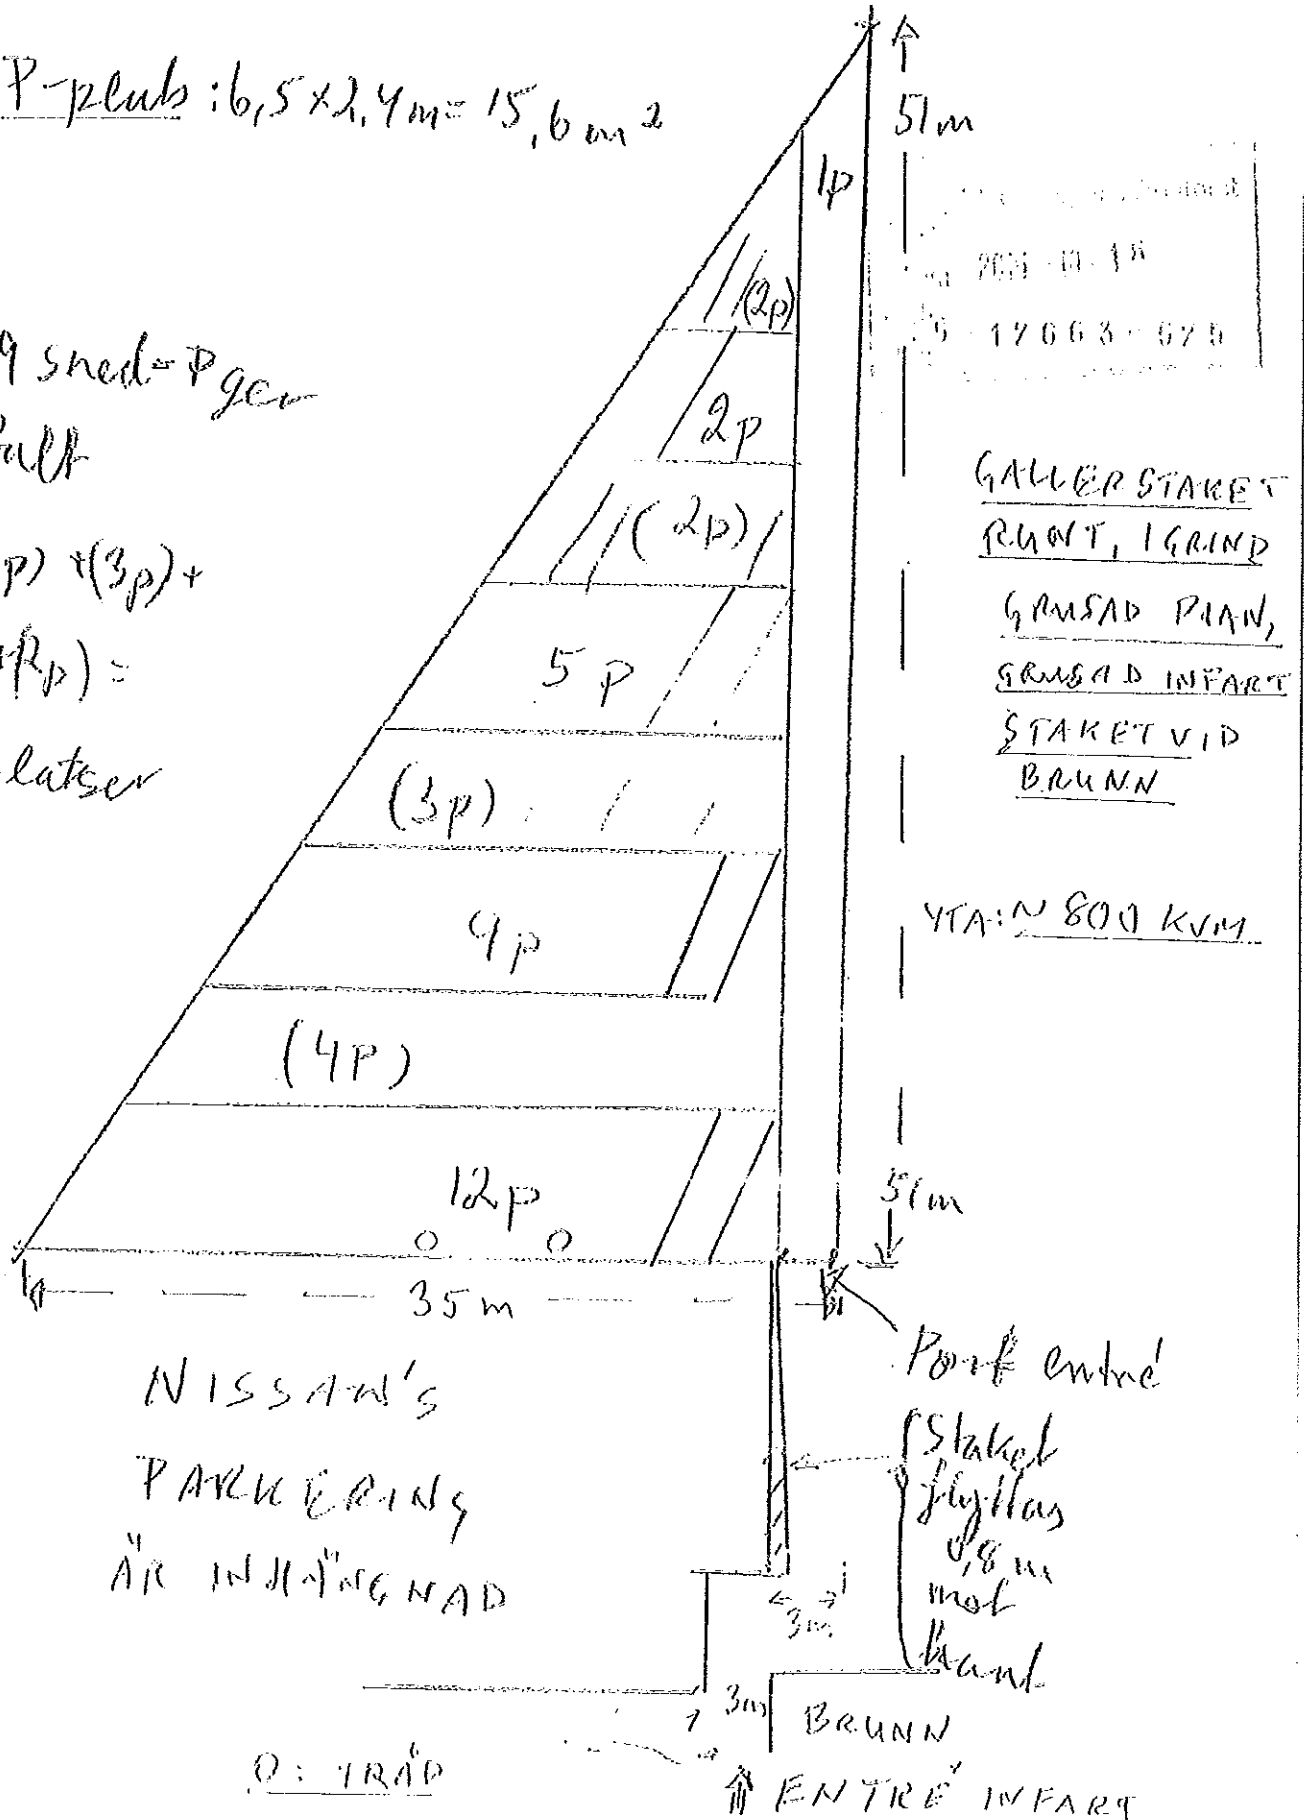 P-plats: 6,5 x 2,4 m = 15,6 m²
51 m
1p
(2p)
sned-P ger
2p
(2p)
p) + (3p) +
(2p) =
5 p
latser
(3p)
9p
(4P)
12p
GALLERSTAKET
RUNT, 1 GRIND
GRUSAD PLAN,
GRUSAD INFART
STAKET VID
BRUNN
YTA: ~ 800 KVM
51m
35 m
Port entré
NISSAN'S
PARKERING
ÄR INHÄGNAD
Staket
flyttas
0,8 m
mot
kant
3m
3m
BRUNN
O: TRÄD
ENTRÉ INFART